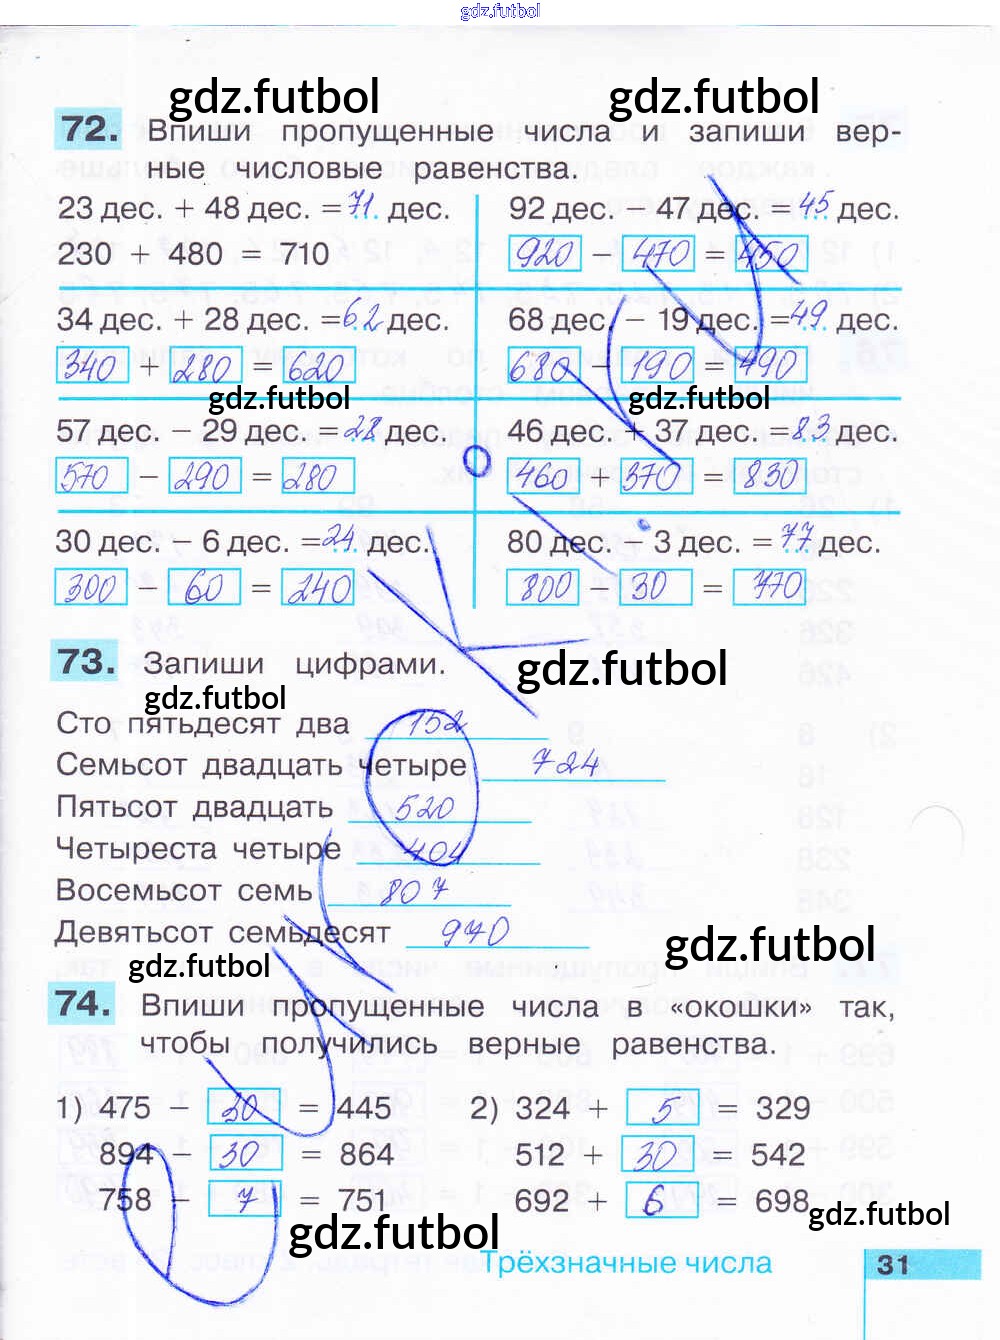 gdz.futbol
gdz.futbol gdz.futbol
72. Впиши пропущенные числа и запиши вер-
ные числовые равенства.
23 дес. + 48 дес. = 71 дес.
230 + 480 = 710
92 дес. − 47 дес. = 45 дес.
920 − 470 = 450
34 дес. + 28 дес. = 62 дес.
340 + 280 = 620
68 дес. − 19 дес. = 49 дес.
680 − 190 = 490
gdz.futbol gdz.futbol
57 дес. − 29 дес. = 28 дес.
570 − 290 = 280
46 дес. + 37 дес. = 83 дес.
460 + 370 = 830
30 дес. − 6 дес. = 24 дес.
300 − 60 = 240
80 дес. − 3 дес. = 77 дес.
800 − 30 = 770
73. Запиши цифрами.
gdz.futbol
gdz.futbol
Сто пятьдесят два 152
Семьсот двадцать четыре 724
Пятьсот двадцать 520
Четыреста четыре 404
Восемьсот семь 807
Девятьсот семьдесят 970
gdz.futbol
gdz.futbol
74. Впиши пропущенные числа в «окошки» так,
чтобы получились верные равенства.
1) 475 − 30 = 445
894 − 30 = 864
758 − 7 = 751
2) 324 + 5 = 329
512 + 30 = 542
692 + 6 = 698
gdz.futbol
gdz.futbol
Трёхзначные числа 31